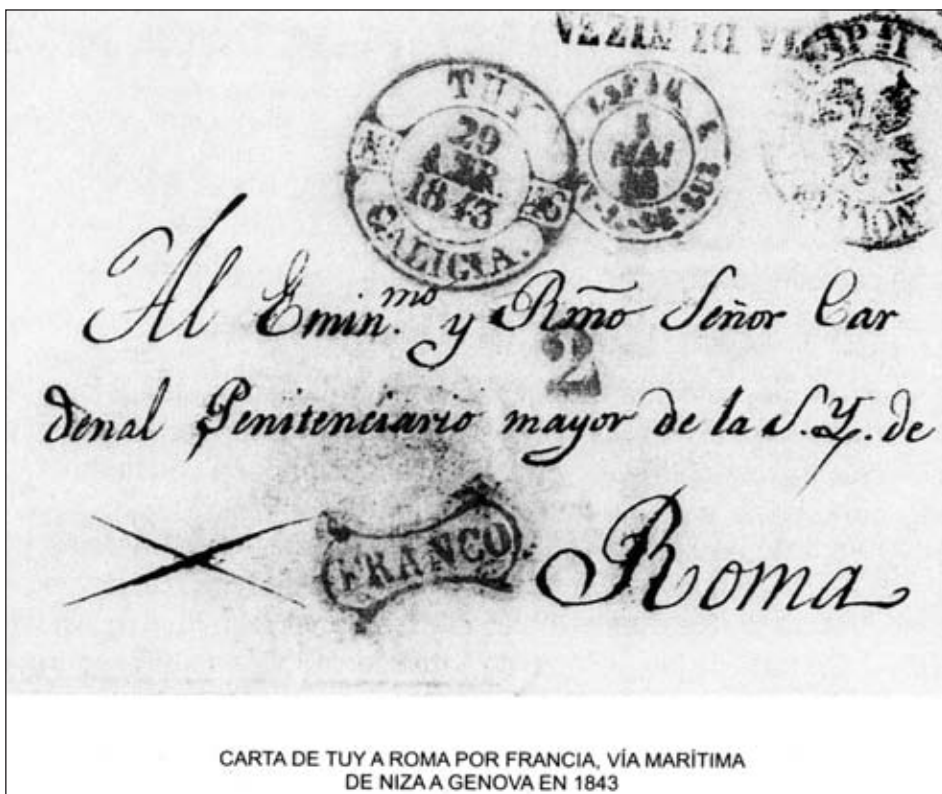 VIA DI NIZZA
TUY
29
ABR.
1843
GALICIA.
MAI
Al Emin.mo y Rmo Señor Car
2
denal Penitenciario mayor de la S. Y. de
FRANCO
Roma
CARTA DE TUY A ROMA POR FRANCIA, VÍA MARÍTIMA
DE NIZA A GENOVA EN 1843